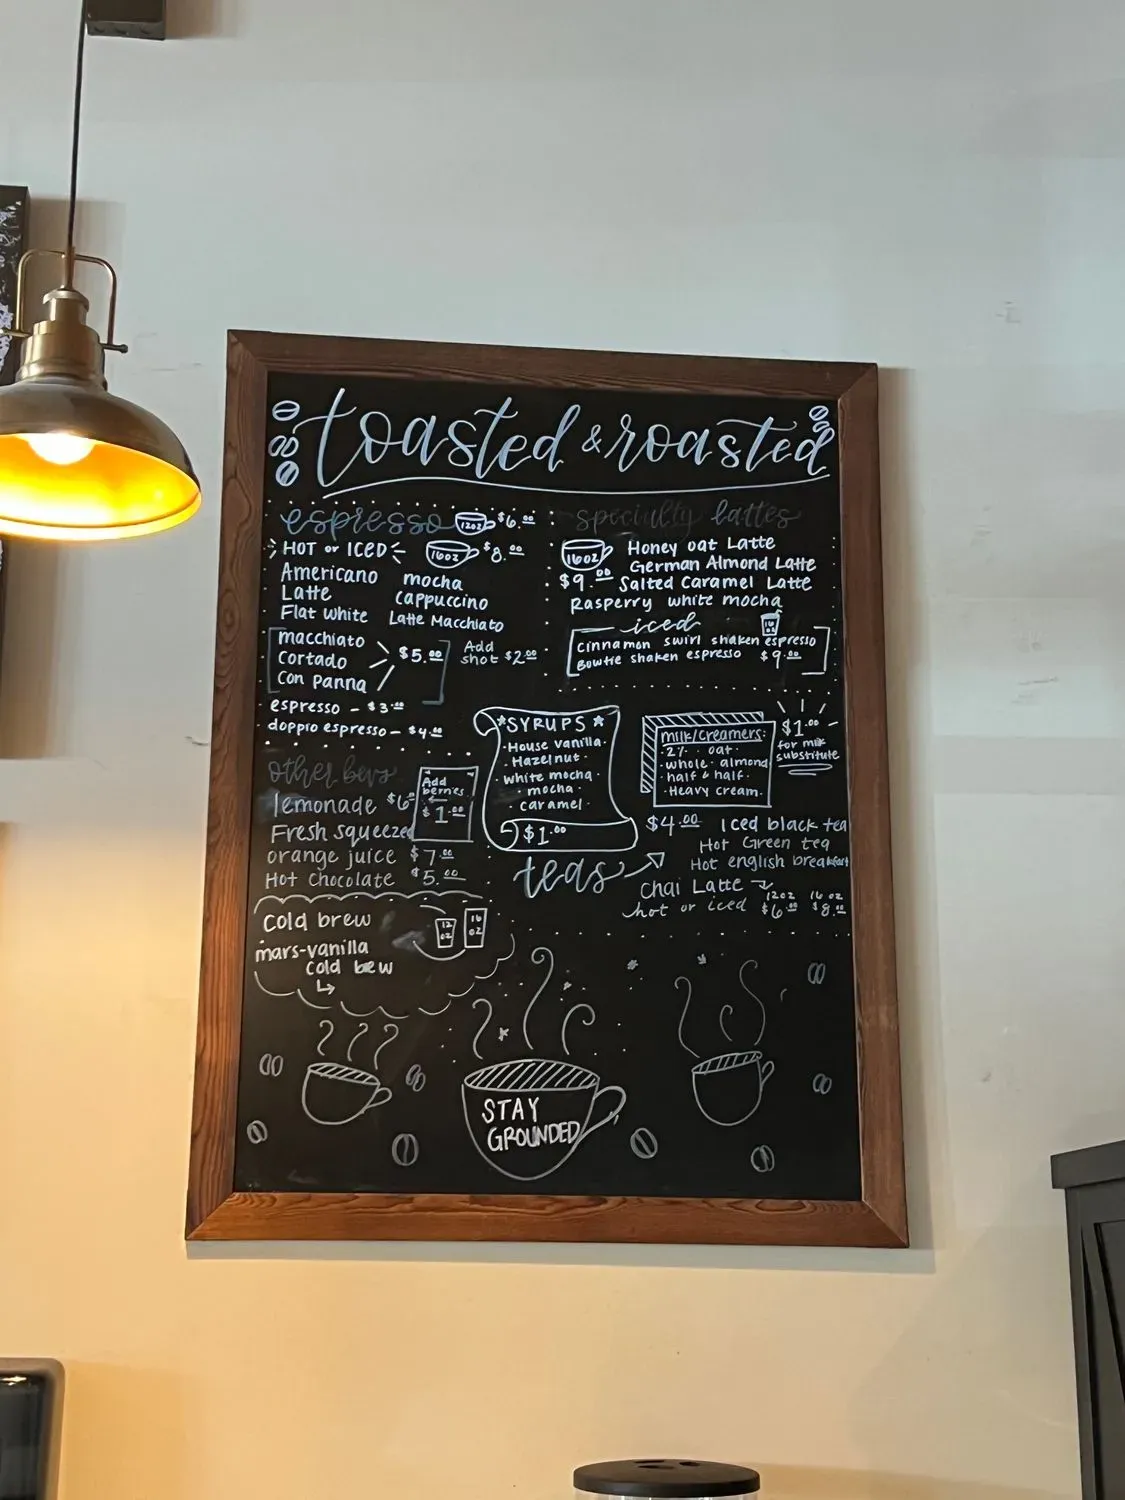 toasted & roasted
espresso 12oz $6.00
HOT or ICED 16oz $8.00
Americano mocha
Latte cappuccino
Flat white Latte Macchiato
macchiato
cortado $5.00
con panna
Add
shot $2.00
espresso - $3.00
doppio espresso - $4.00
specialty lattes
16oz Honey oat Latte
German Almond Latte
$9.00 Salted Caramel Latte
Rasperry white mocha
iced
16 oz
cinnamon swirl shaken espresso
Bowtie shaken espresso $9.00
other bevs
lemonade $6.00
Fresh squeezed
orange juice $7.00
Hot chocolate $5.00
Add
berries
$1.00
SYRUPS
House vanilla
Hazelnut
white mocha
mocha
caramel
$1.00
milk/creamers:
2% oat
whole almond
half & half
Heavy cream
$1.00
for milk
substitute
teas
$4.00 Iced black tea
Hot Green tea
Hot english breakfast
Chai Latte
12oz 16oz
hot or iced $6.00 $8.00
cold brew
12 oz
16 oz
mars-vanilla
cold brew
STAY
GROUNDED